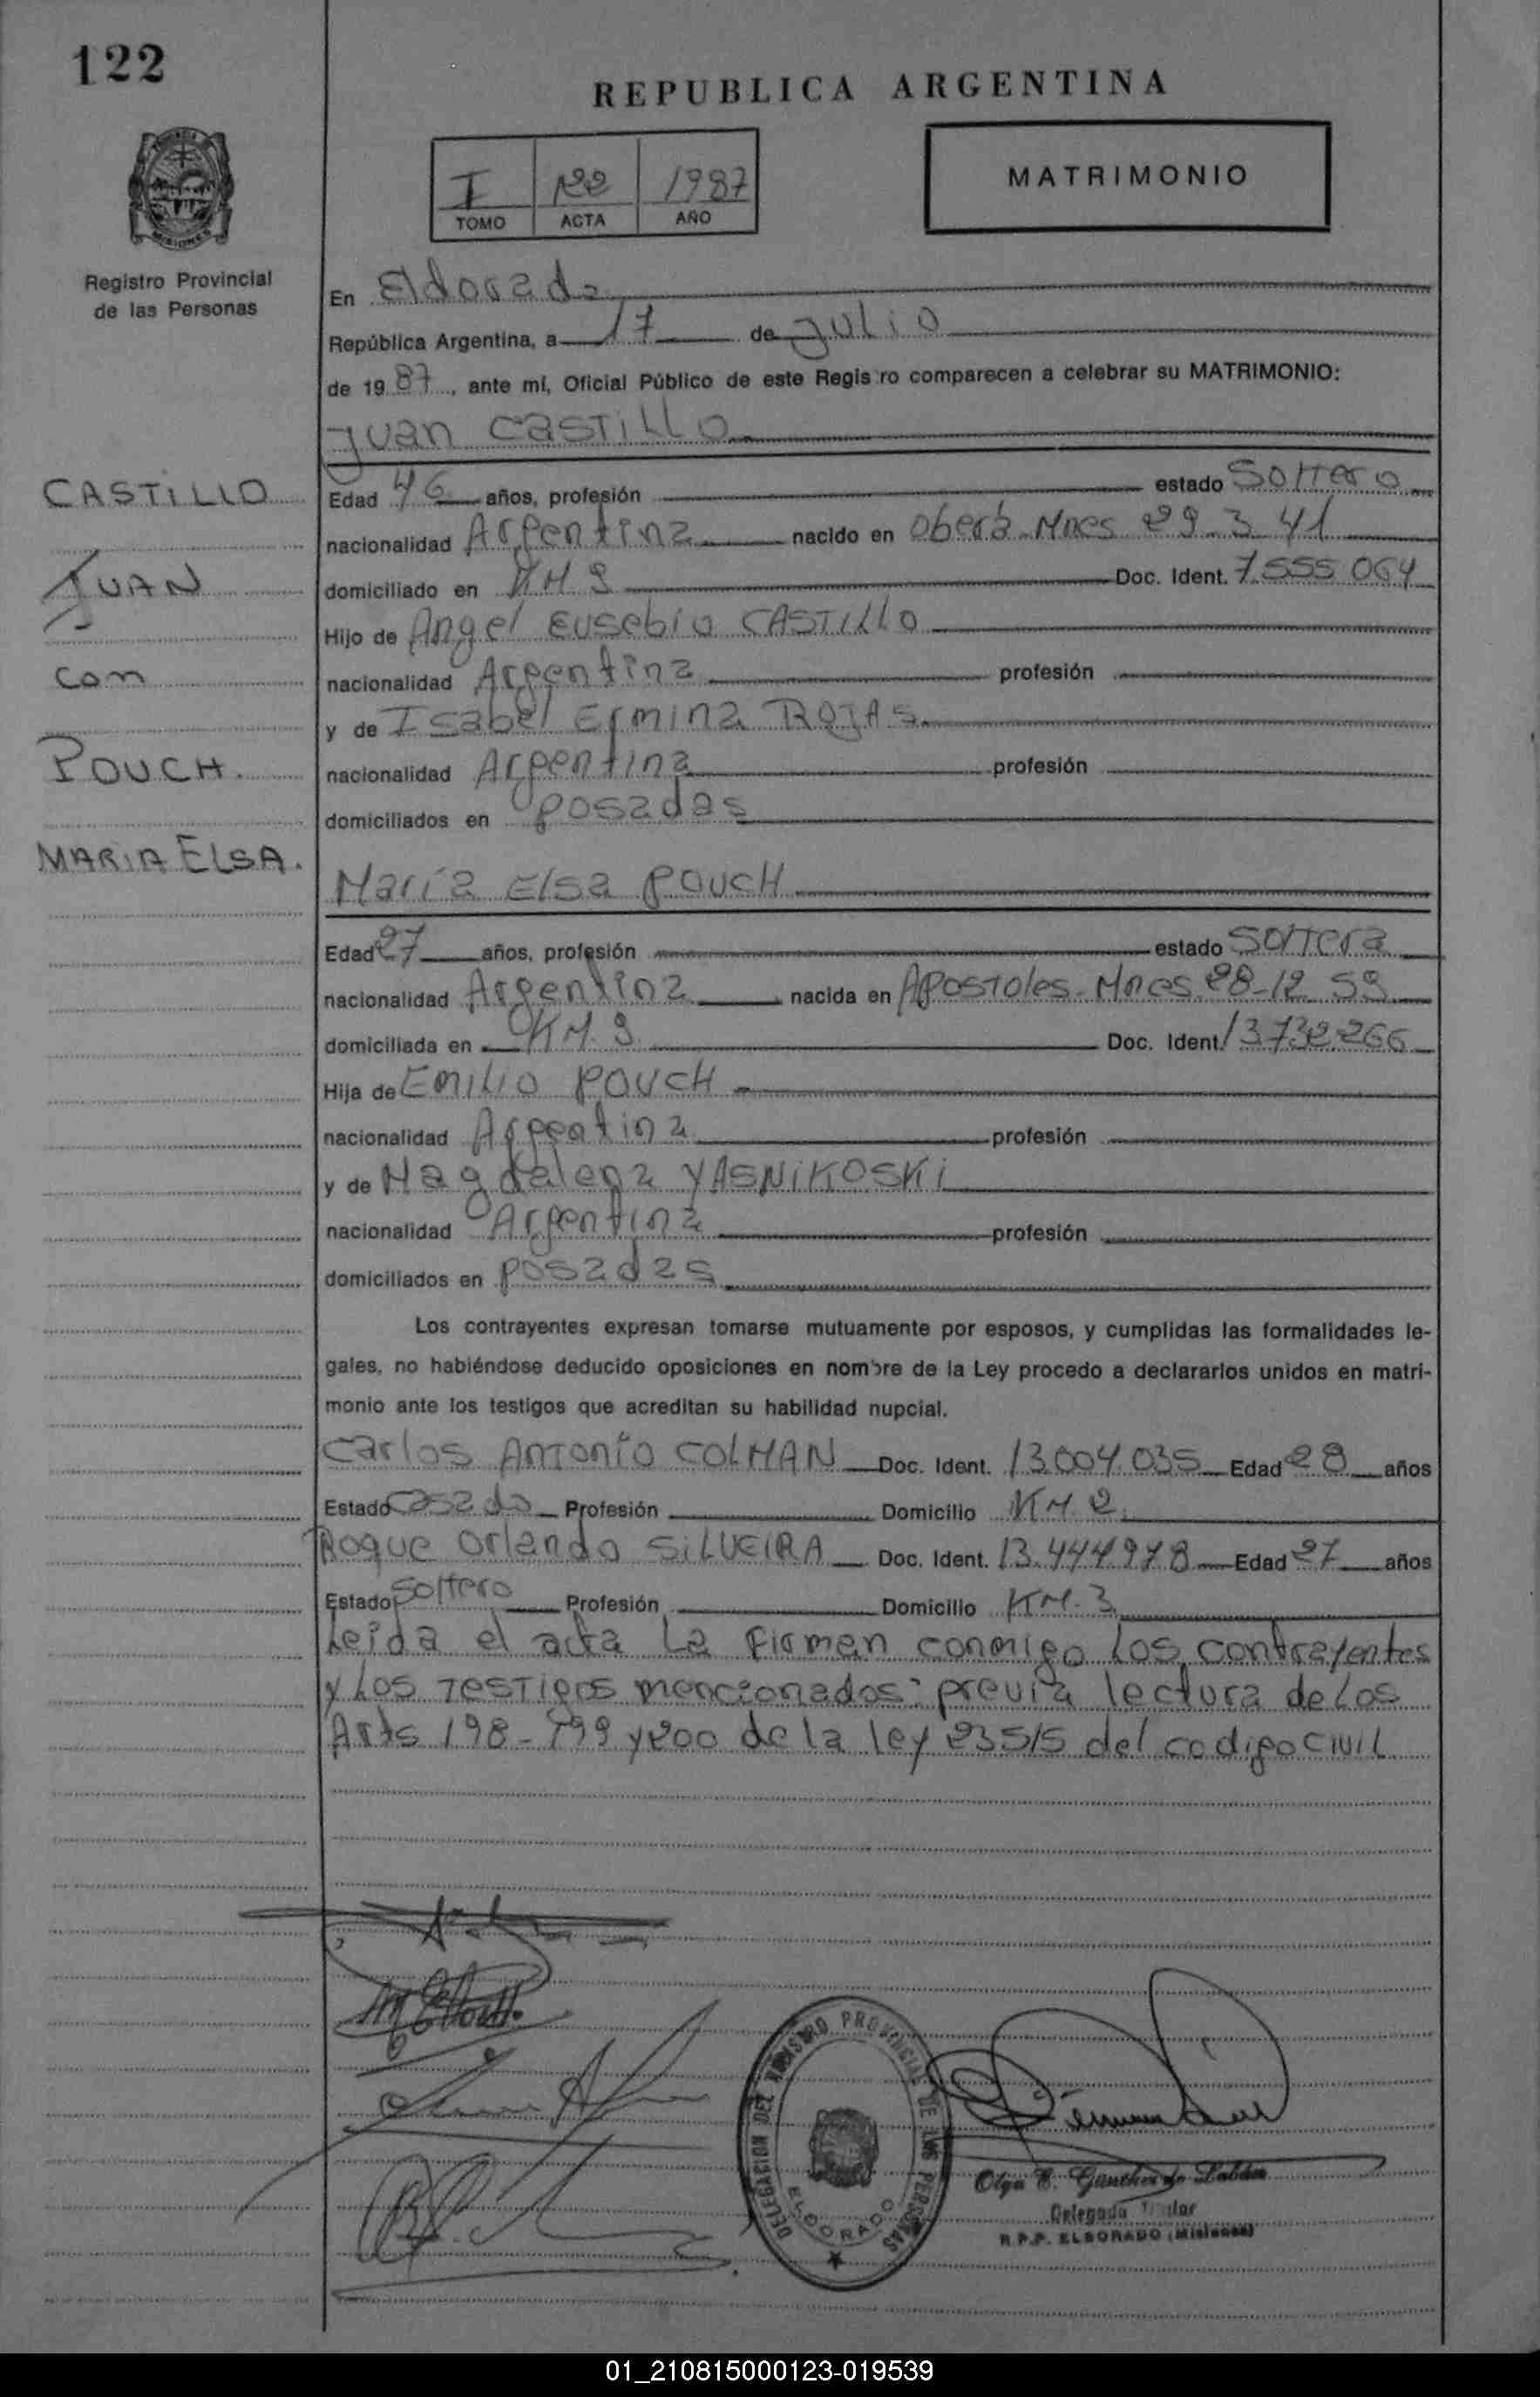 122
REPUBLICA ARGENTINA
I 122 1987
TOMO ACTA AÑO
MATRIMONIO
MISIONES
Registro Provincial
de las Personas
En Eldorado
República Argentina, a 17 de Julio
de 1987, ante mí, Oficial Público de este Registro comparecen a celebrar su MATRIMONIO:
Juan CASTILLO
CASTILLO
JUAN
con
POUCH.
MARIA ELSA.
Edad 46 años, profesión estado Soltero
nacionalidad Argentina nacido en Oberá-Mnes 29.3.41
domiciliado en KM 9 Doc. Ident. 7.555.064
Hijo de Angel Eusebio CASTILLO
nacionalidad Argentina profesión
y de Isabel Ermina ROJAS
nacionalidad Argentina profesión
domiciliados en posadas
María Elsa POUCH
Edad 27 años, profesión estado Soltera
nacionalidad Argentina nacida en Apostoles-Mnes 28-12-59
domiciliada en KM. 9 Doc. Ident. 13.732.266
Hija de Emilio POUCH
nacionalidad Argentina profesión
y de Magdalena YASNIKOSKI
nacionalidad Argentina profesión
domiciliados en posadas
Los contrayentes expresan tomarse mutuamente por esposos, y cumplidas las formalidades le-
gales, no habiéndose deducido oposiciones en nombre de la Ley procedo a declararlos unidos en matri-
monio ante los testigos que acreditan su habilidad nupcial.
Carlos Antonio COLMAN Doc. Ident. 13.004.035 Edad 28 años
Estado Casado Profesión Domicilio KM 2
Roque Orlando SILVEIRA Doc. Ident. 13.444.978 Edad 27 años
Estado Soltero Profesión Domicilio KM. 3
Leida el acta La firman conmigo Los contrayentes
y Los Testigos mencionados: previa lectura de Los
Arts 198-199 y 200 de la ley 23515 del codigo CIVIL
DELEGACION DEL REGISTRO PROVINCIAL DE LAS PERSONAS
ELDORADO
Olga E. Gunther de Labán
Delegada Titular
R.P.P. ELDORADO (Misiones)
01_210815000123-019539